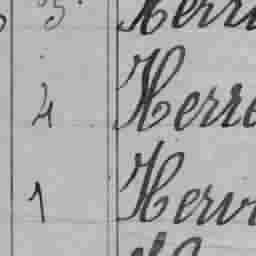 3. Herr
4 Herre
1 Herv